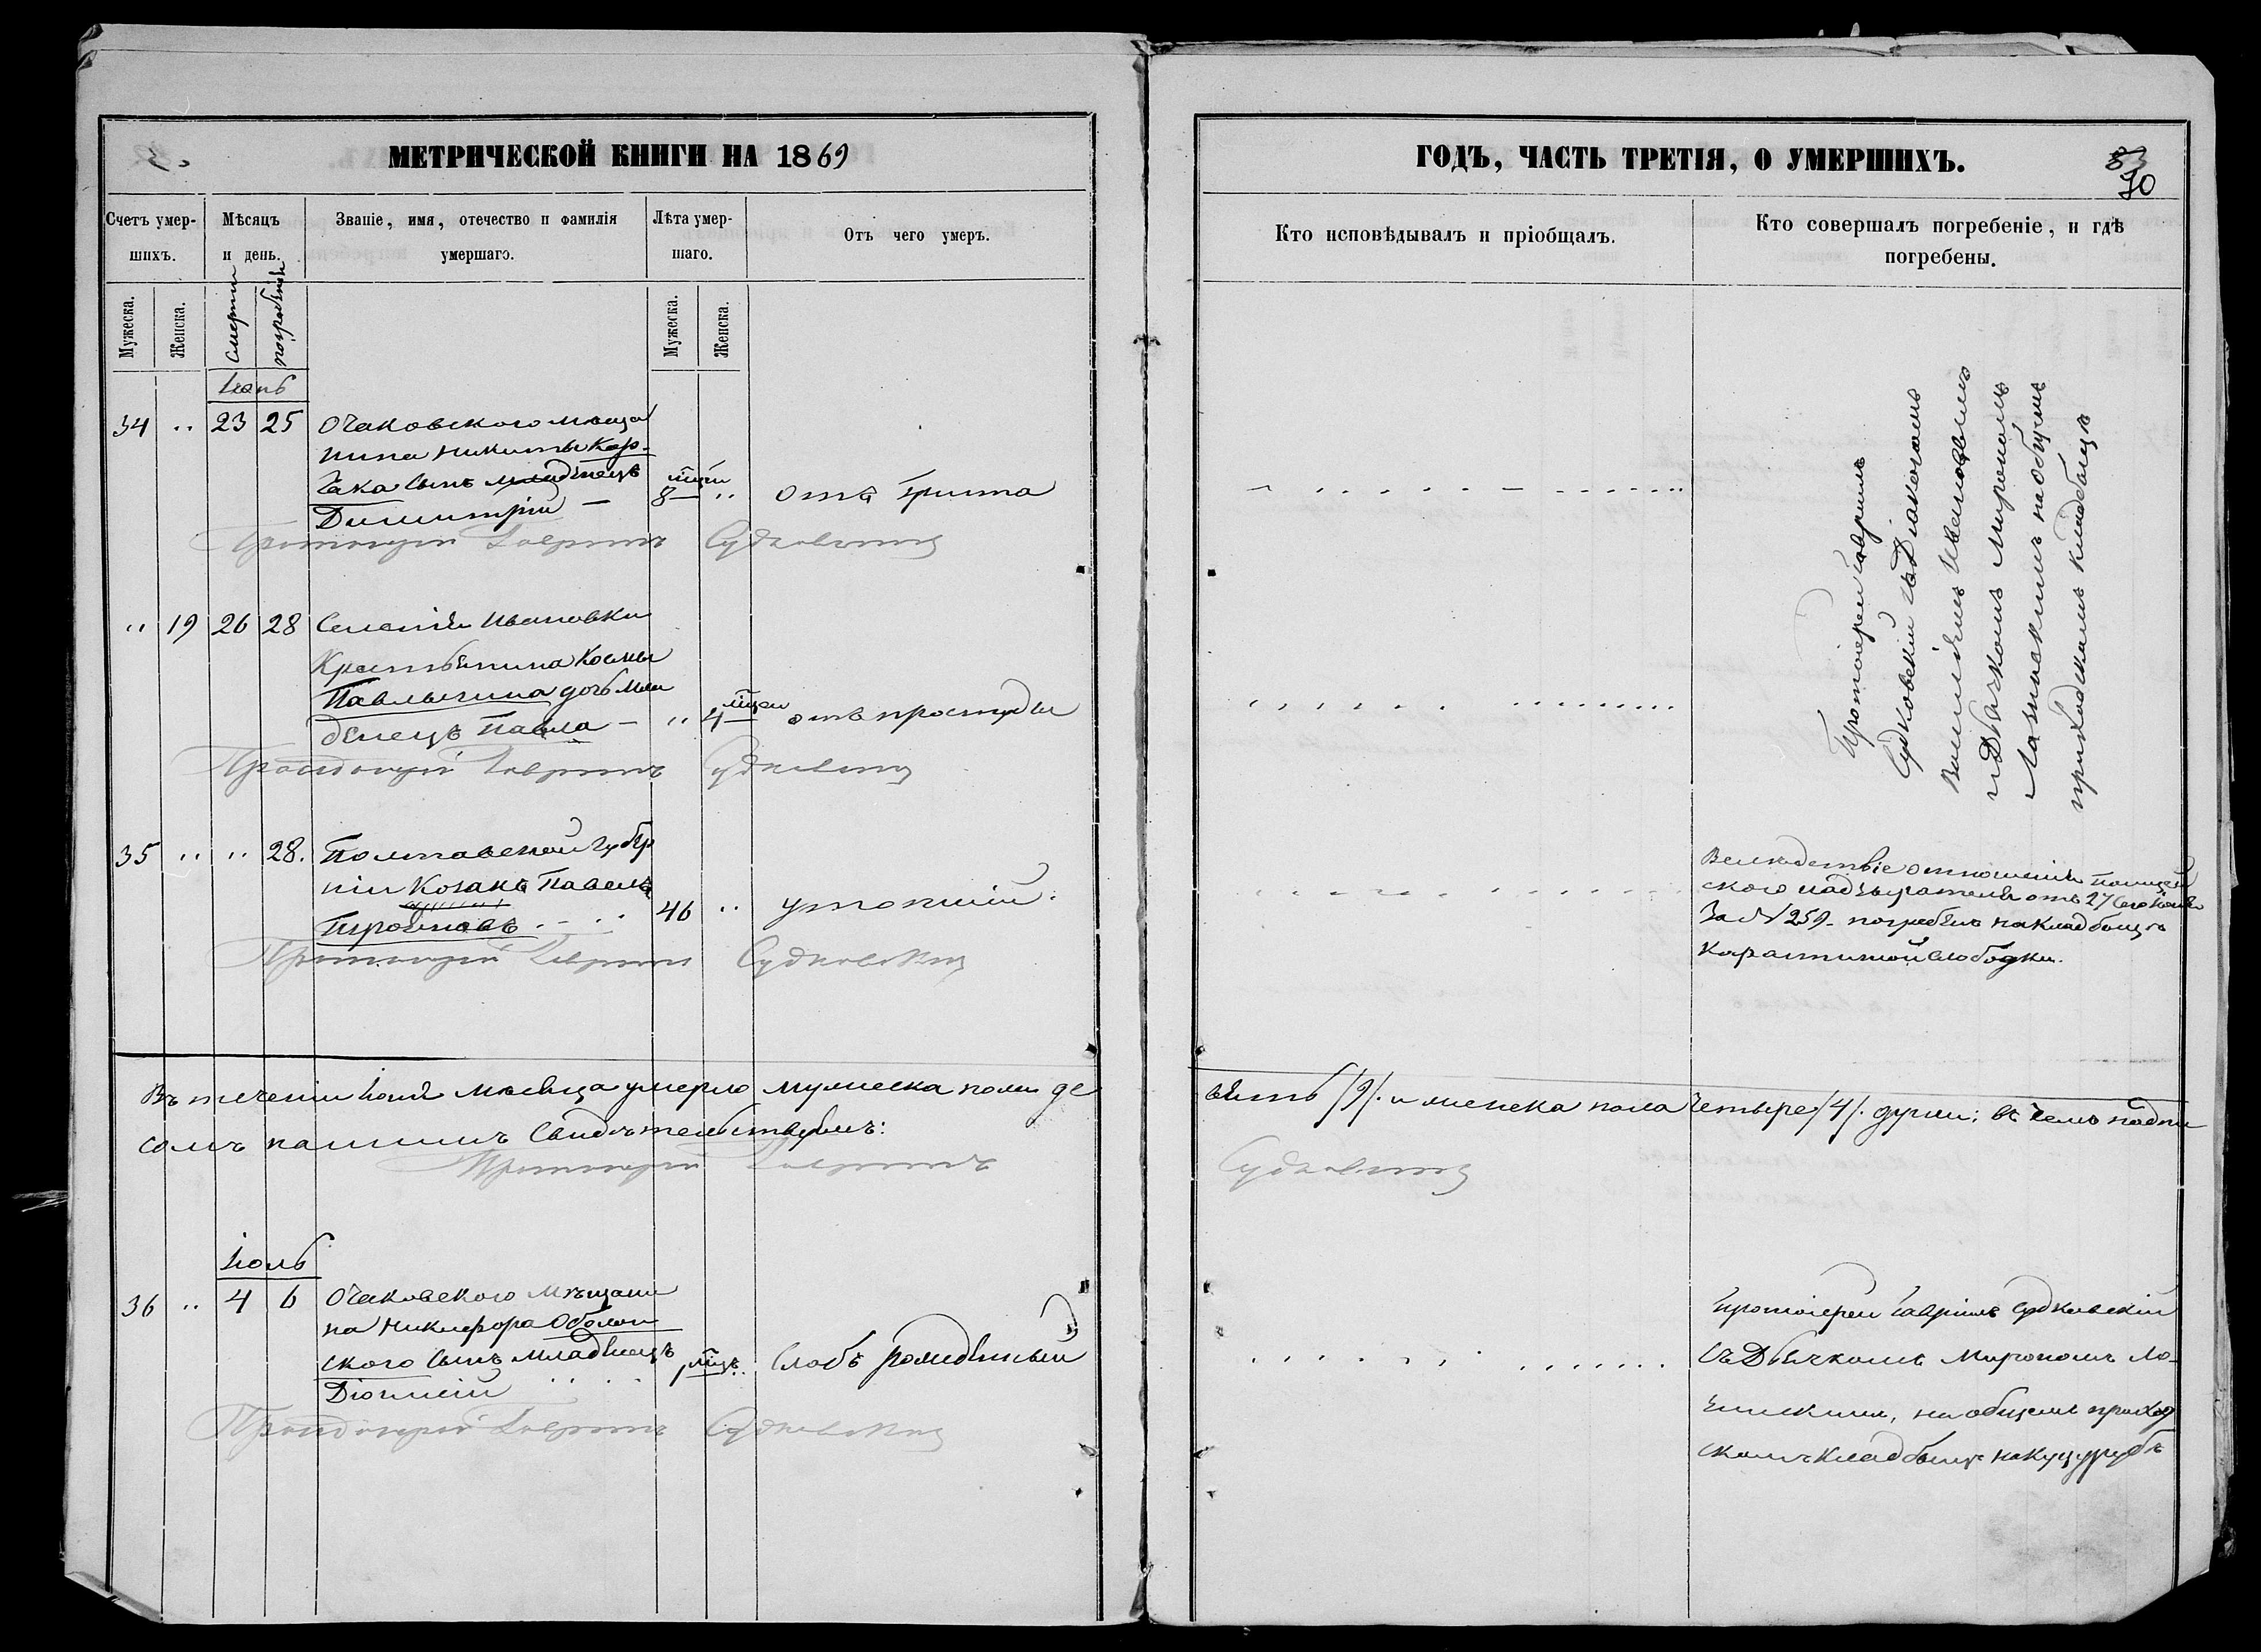 МЕТРИЧЕСКОЙ КНИГИ НА 1869
Счетъ умер-
шихъ.
Мѣсяцъ
и день.
Званіе, имя, отечество и фамилія
умершаго.
Лѣта умер-
шаго.
Отъ чего умеръ.
Мужеска.
Женска.
смерти
погребенія
Мужеска.
Женска.
Іюнь
34 " 23 25 Очаковского мѣща
нина Никиты Кор-
чака сынъ младенецъ
Димитрій — 8 " отъ
Протоіерей Гавріилъ Судковскій
" 19 26 28 Селенія Ивановки
Крестьянина Космы
дочь мла
денецъ Павла — " 4 отъ простуды
Протоіерей Гавріилъ Судковскій
35 " " 28. Полтавской губер
ніи Козакъ Павелъ
46 " утопшій.
Протоіерей Гавріилъ Судковскій
Въ теченіи Іюня мѣсяца умерло мужеска пола де
самъ нашимъ свидѣтельствуемъ:
Протоіерей Гавріилъ
Іюль
36 " 4 6 Очаковского мѣщани
на Никифора Оболон
ского сынъ младенецъ
Діонисій 1 мцъ " слабо рожденный
Протоіерей Гавріилъ Судковскій
ГОДЪ, ЧАСТЬ ТРЕТІЯ, О УМЕРШИХЪ.
83
90
Кто исповѣдывалъ и пріобщалъ.
Кто совершалъ погребеніе, и гдѣ
погребены.
Протоіерей Гавріилъ
Судковскій съ Діакономъ
и Дьячкомъ Мирономъ
на общемъ
приходскомъ кладбищѣ
Вслѣдствіе отношенія Полицей
ского надзирателя отъ 27 сего Іюня
За № 259. погребенъ на кладбищѣ
карантинной слободки.
вять /9/. и женска пола четыре /4/. души: въ чемъ подпи
Судковскій
Протоіерей Гавріилъ Судковскій
съ Дьячкомъ Мирономъ Ло-
зинскимъ, на общемъ приход
скомъ кладбищѣ